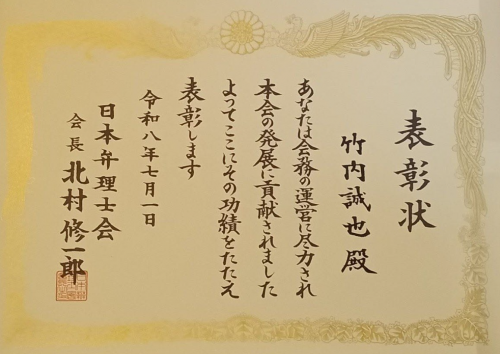 表彰状
竹内誠也殿
あなたは会務の運営に尽力され
本会の発展に貢献されました
よってここにその功績をたたえ
表彰します
令和八年七月一日
日本弁理士会
会長 北村修一郎